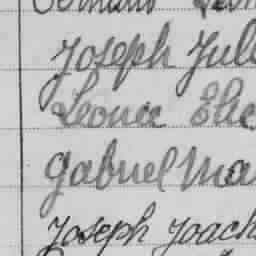 Joseph Jul
Léonce Elie
Gabriel Ma
Joseph Joach